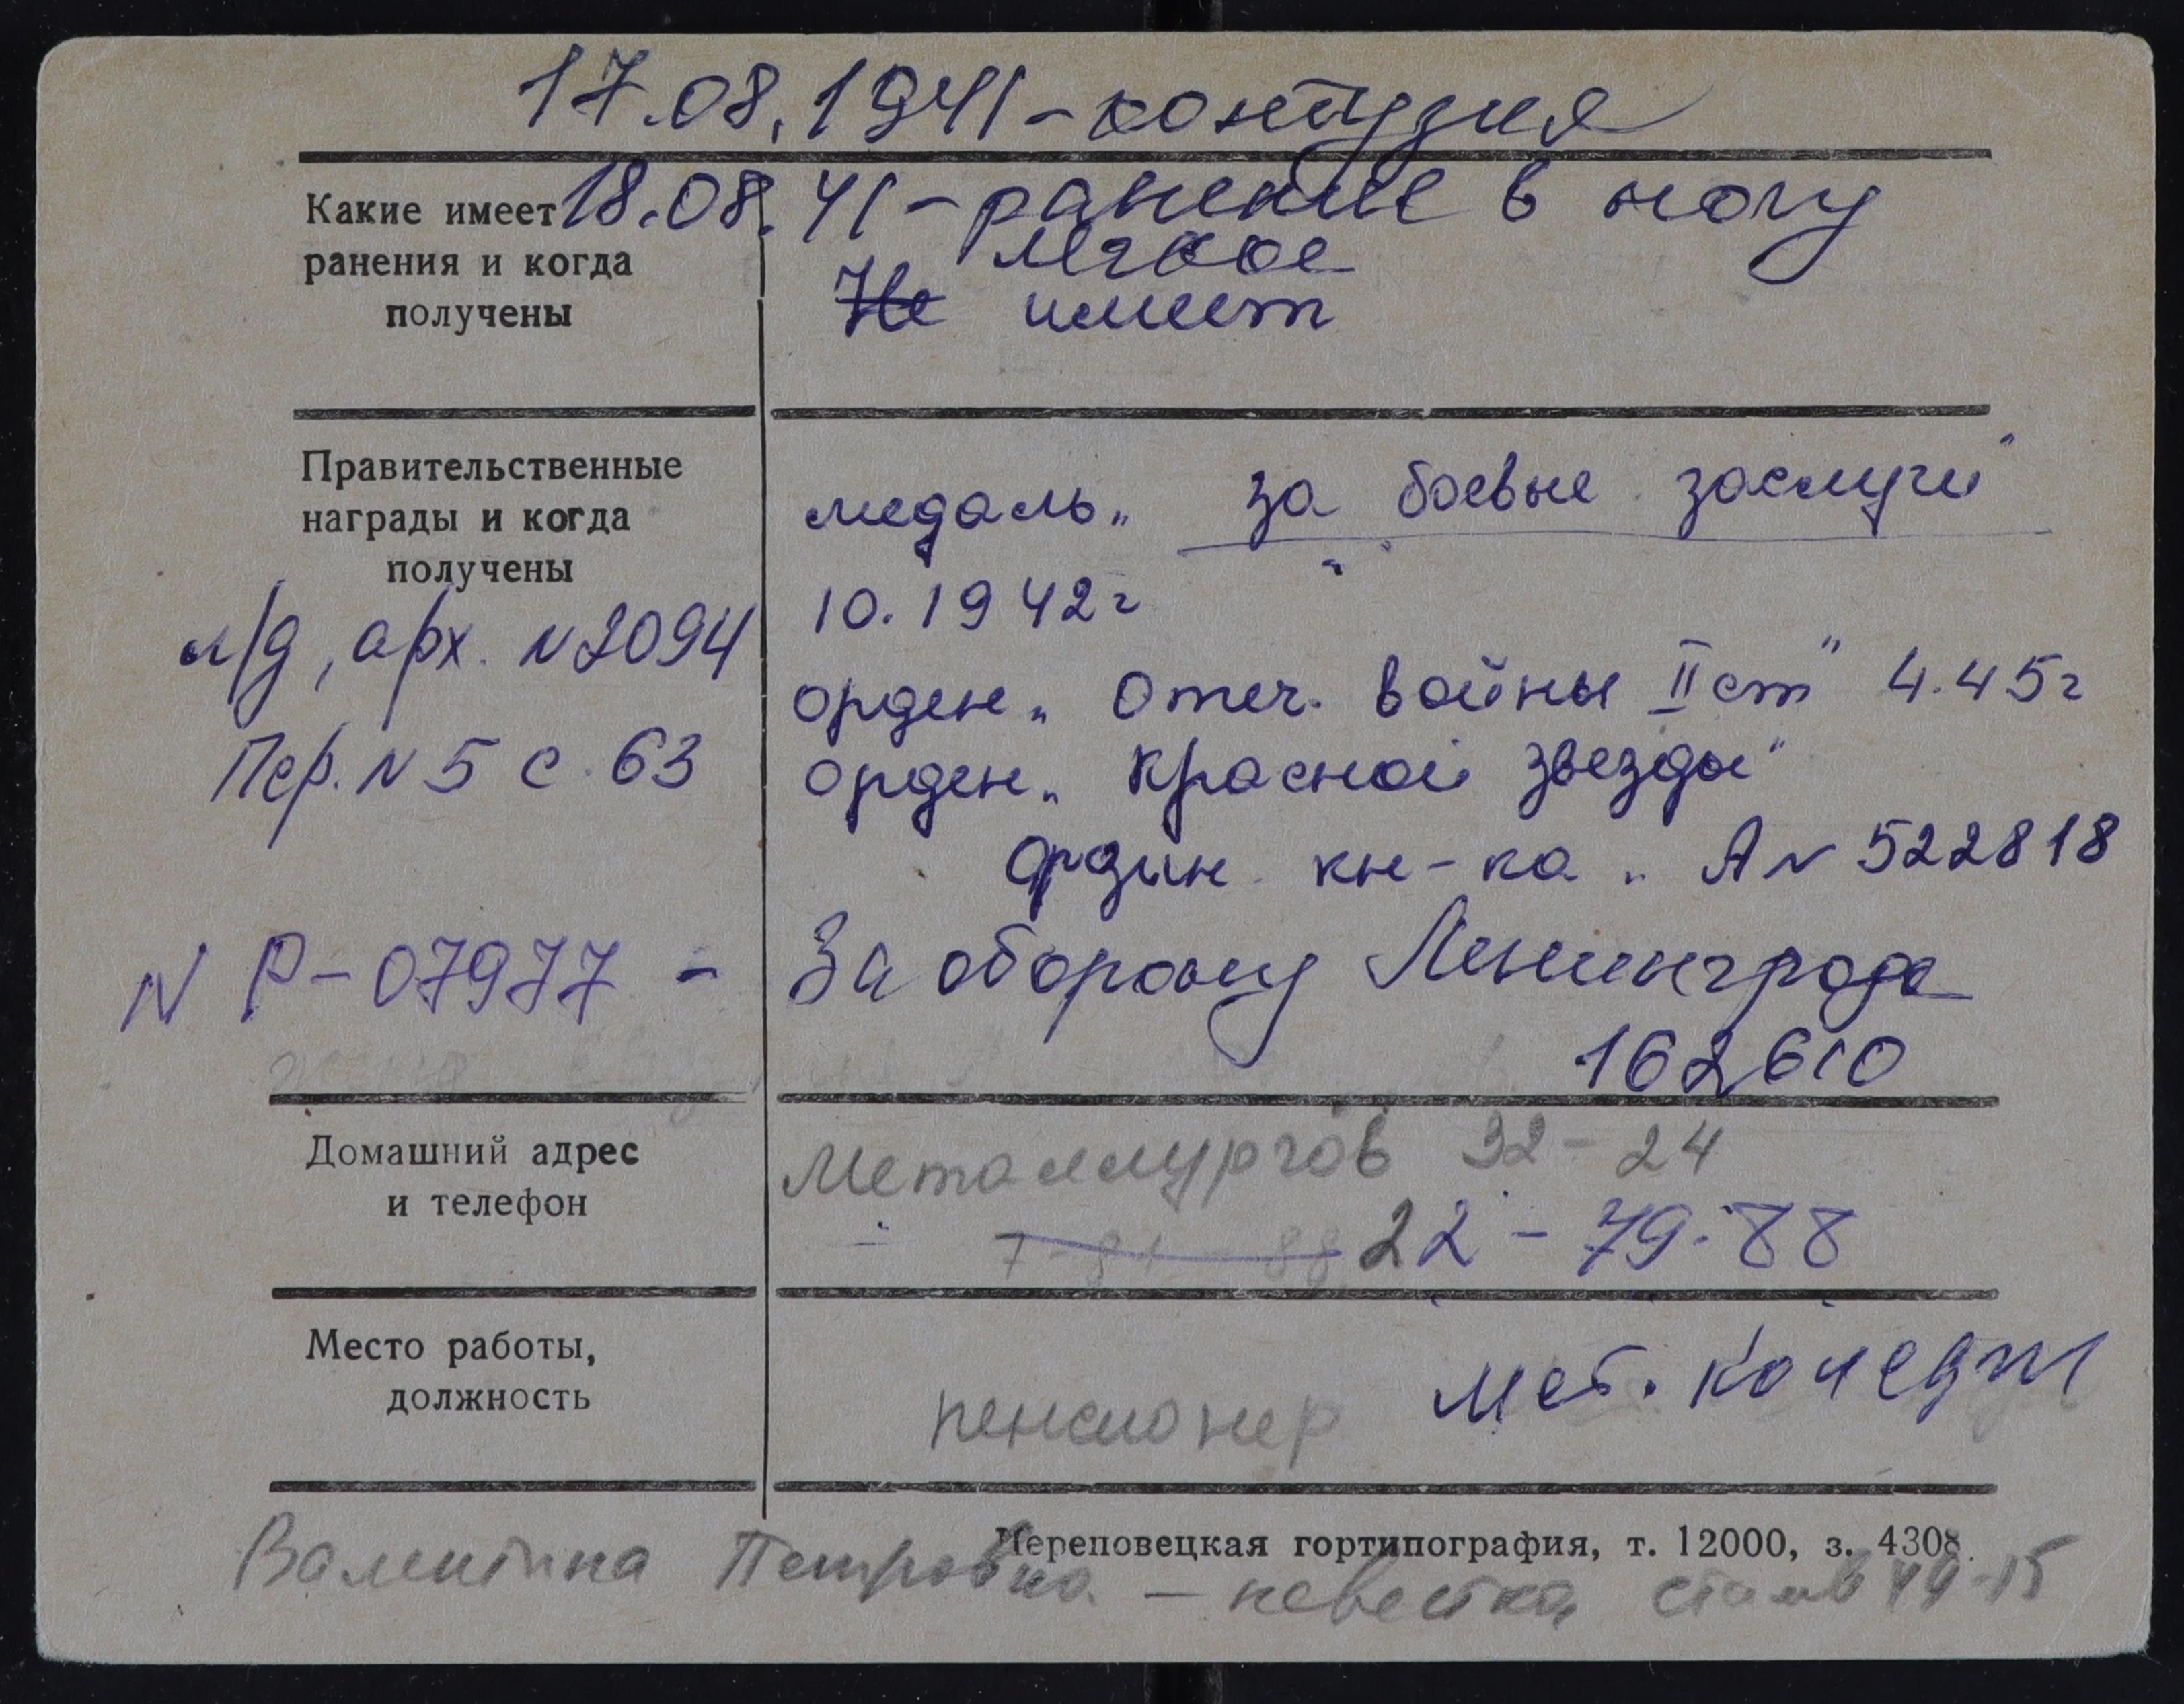 17.08.1941 - контузия
Какие имеет 18.08.41 - ранение в ногу
ранения и когда легкое
получены Не имеет
Правительственные
награды и когда медаль „ За боевые заслуги"
получены
10.1942г
л/д, арх. N2094
орден „ Отеч. войны II ст" 4.45г
Пер. N5 с. 63 орден „ Красной звезды"
кн-ка „ А N 522818
N Р-07977 - За оборону Ленинграда
162610
Домашний адрес Металлургов 32-24
и телефон 22-79-88
Место работы, мет. колледж
должность пенсионер
Череповецкая гортипография, т. 12000, з. 4308.
Валентина Петровна - невестка 49-15